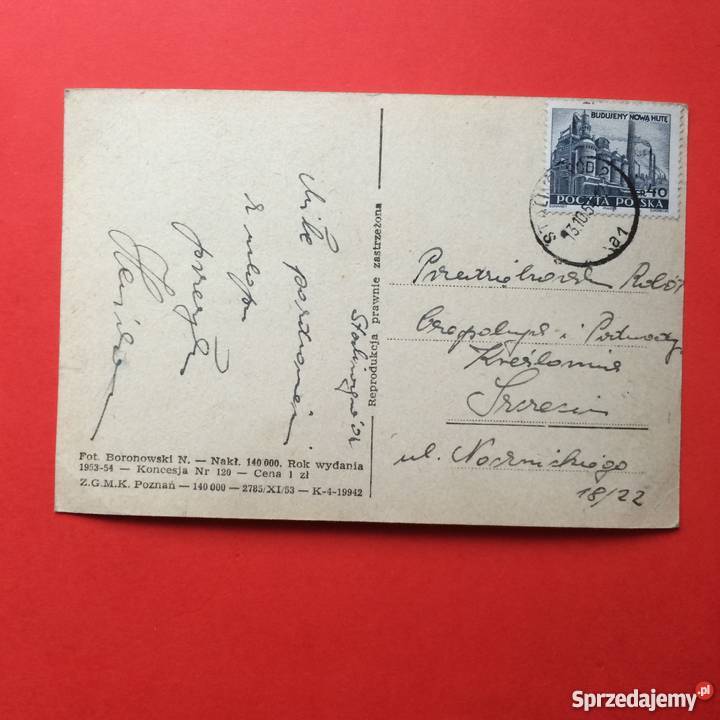 Miłe pozdrowienia
z urlopu
przesyła
Stalinogród
Fot. Boronowski N. — Nakł. 140 000. Rok wydania
1953-54 — Koncesja Nr 120 — Cena 1 zł
Z.G.M.K. Poznań — 140 000 — 2785/XI/53 — K-4-19942
Reprodukcja prawnie zastrzeżona
BUDUJEMY NOWĄ HUTĘ
40
POCZTA POLSKA
STALINOGRÓD 2
13.10.5
Robót
i Podwodn
Kreślarnia
Szczecin
ul.
18/22
Sprzedajemy.pl